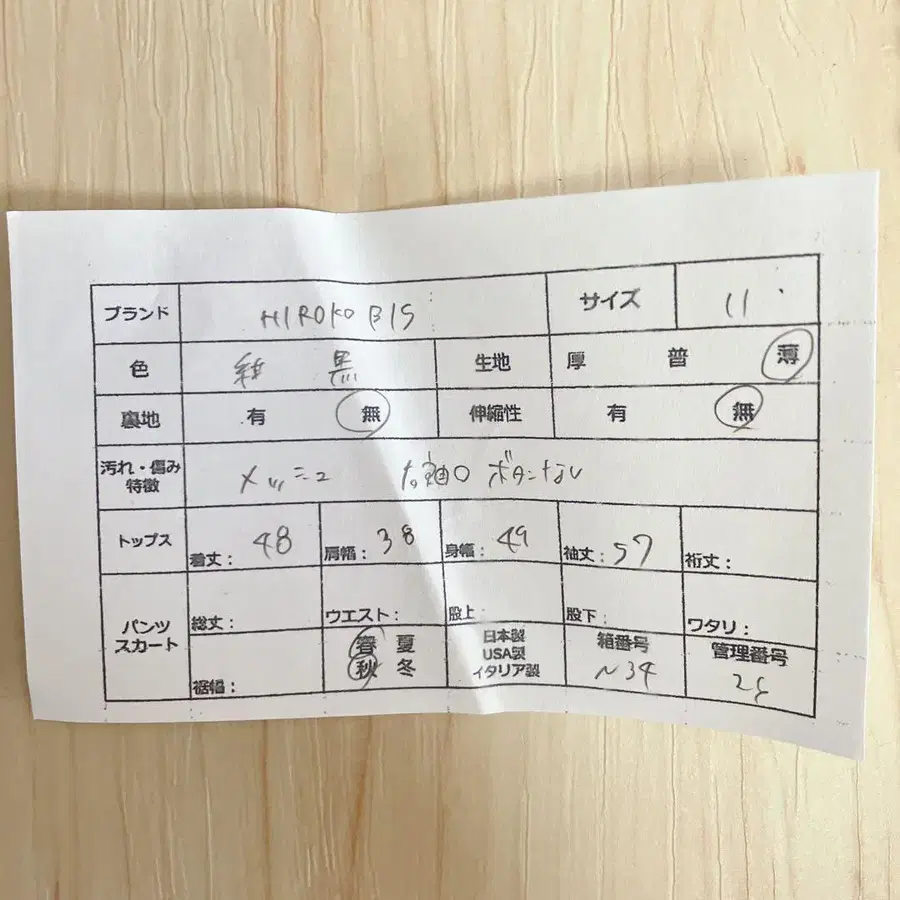 ブランド HIROKO BIS サイズ 11
色 紺 黒 生地 厚 普 薄
裏地 有 無 伸縮性 有 無
汚れ・傷み
特徴 メッシュ 袖口 ボタンなし
トップス 着丈: 48 肩幅: 38 身幅: 49 袖丈: 57 裄丈:
パンツ
スカート 総丈: ウエスト: 股上: 股下: ワタリ:
裾幅: 春 夏
秋 冬 日本製
USA製
イタリア製 箱番号
N34 管理番号